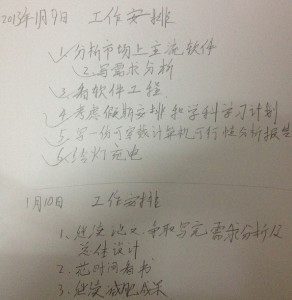 2013年1月9日 工作安排
1.分析市场上主流软件
2.写需求分析
3.看软件工程
4.考虑假期安排和学科学习计划
5.写一份可审核计算机可行性分析报告
6.给灯充电
1月10日 工作安排
1.继续 争取写完需求分析及
总体设计
2.花时间看书
3.继续减肥成果